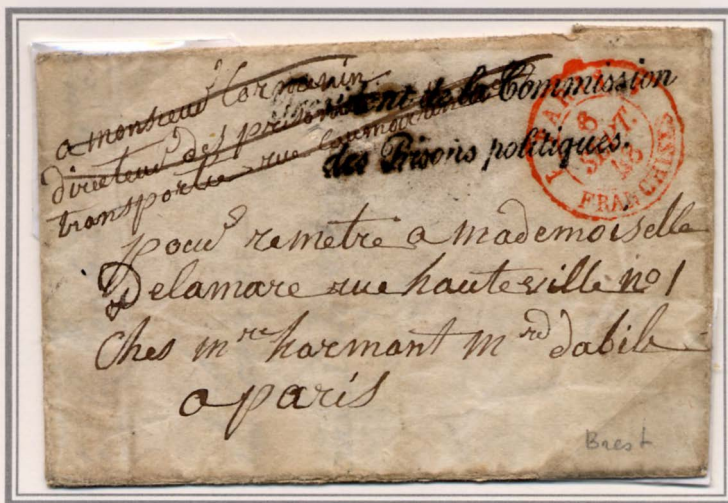 a monsieur Cormenin
directeur des
transportés rue
ent de la Commission
des Prisons politiques.
PARIS
8
SEPT.
48
FRANCHISES
pour remetre a mademoiselle
Delamare rue hauteville no 1
Ches mre harmant mrd dabile
a paris
Brest